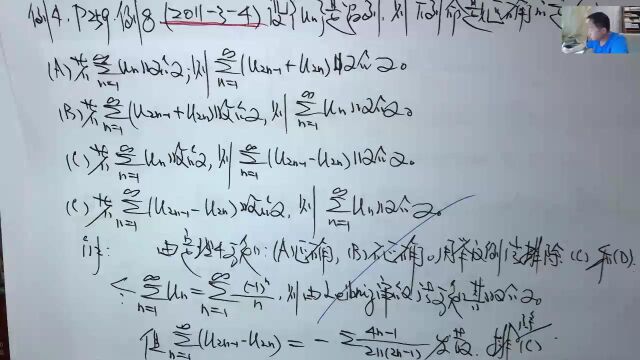 例4. P249 例8 (2011-3-4) 设{uₙ}是数列, 则下列命题正确的是
(A) 若 ∑_{n=1}^∞ uₙ 收敛, 则 ∑_{n=1}^∞ (u_{2n-1} + u_{2n}) 收敛。
(B) 若 ∑_{n=1}^∞ (u_{2n-1} + u_{2n}) 收敛, 则 ∑_{n=1}^∞ uₙ 收敛。
(C) 若 ∑_{n=1}^∞ uₙ 收敛, 则 ∑_{n=1}^∞ (u_{2n-1} - u_{2n}) 收敛。
若 ∑_{n=1}^∞ (u_{2n-1} - u_{2n}) 收敛, 则 ∑_{n=1}^∞ uₙ 收敛。
证: 由定理4知: (A)正确, (B)不正确。用举反例法排除 (C) 和 (D).
∑_{n=1}^∞ uₙ = ∑_{n=1}^∞ (-1)ⁿ/n, 则由Leibniz审敛法知其收敛。
但 ∑_{n=1}^∞ (u_{2n-1} - u_{2n}) = - ∑ (4n-1)/(2n(2n-1)) 发散. 排除(C)